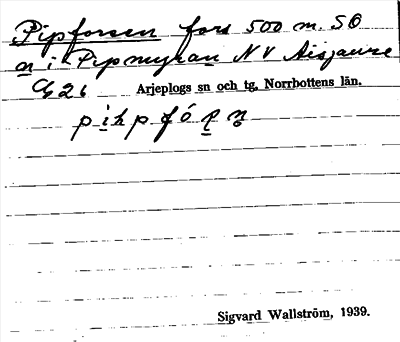 Pipforsen fors 500 m. SO
n i Pipmyran NV Aisjaure
G26 Arjeplogs sn och tg, Norrbottens län.
Sigvard Wallström, 1939.